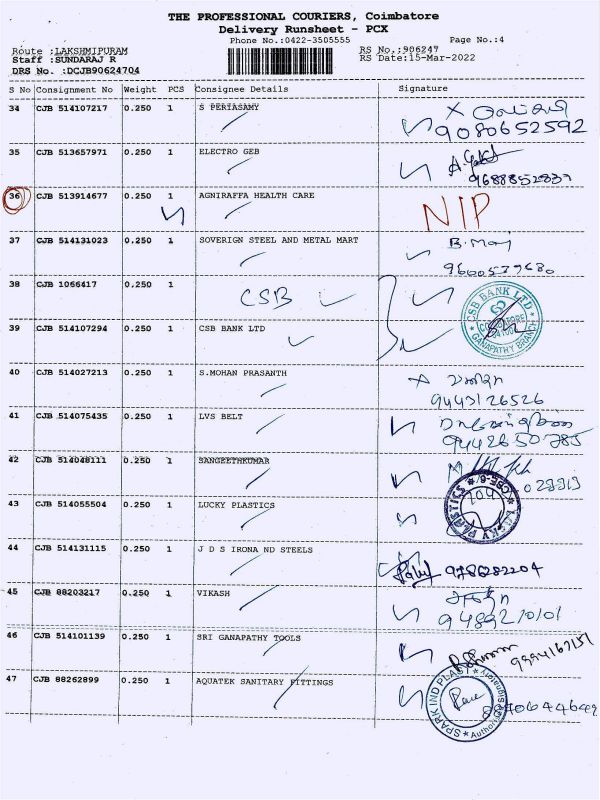 THE PROFESSIONAL COURIERS, Coimbatore
Delivery Runsheet - PCX
Phone No.:0422-3505555 Page No.:4
Route :LAKSHMIPURAM RS No.:906247
Staff :SUNDARAJ R RS Date:15-Mar-2022
DRS No. :DCJB90624704
S No Consignment No Weight PCS Consignee Details Signature
34 CJB 514107217 0.250 1 S PERIASAMY
9080652592
35 CJB 513657971 0.250 1 ELECTRO GEB
9688852837
36 CJB 513914677 0.250 1 AGNIRAFFA HEALTH CARE NIP
37 CJB 514131023 0.250 1 SOVERIGN STEEL AND METAL MART B.
38 CJB 1066417 0.250 1 CSB
CSB BANK LTD
GANAPATHY BRANCH
39 CJB 514107294 0.250 1 CSB BANK LTD
40 CJB 514027213 0.250 1 S.MOHAN PRASANTH
9443126526
41 CJB 514075435 0.250 1 LVS BELT
9442650785
42 CJB 514048111 0.250 1 SANGEETHKUMAR
43 CJB 514055504 0.250 1 LUCKY PLASTICS
LUCKY PLASTICS
44 CJB 514131115 0.250 1 J D S IRONA ND STEELS
9786282204
45 CJB 88203217 0.250 1 VIKASH
9489210101
46 CJB 514101139 0.250 1 SRI GANAPATHY TOOLS
47 CJB 88262899 0.250 1 AQUATEK SANITARY FITTINGS
SPARK IND PLAST
Authorised Signatory